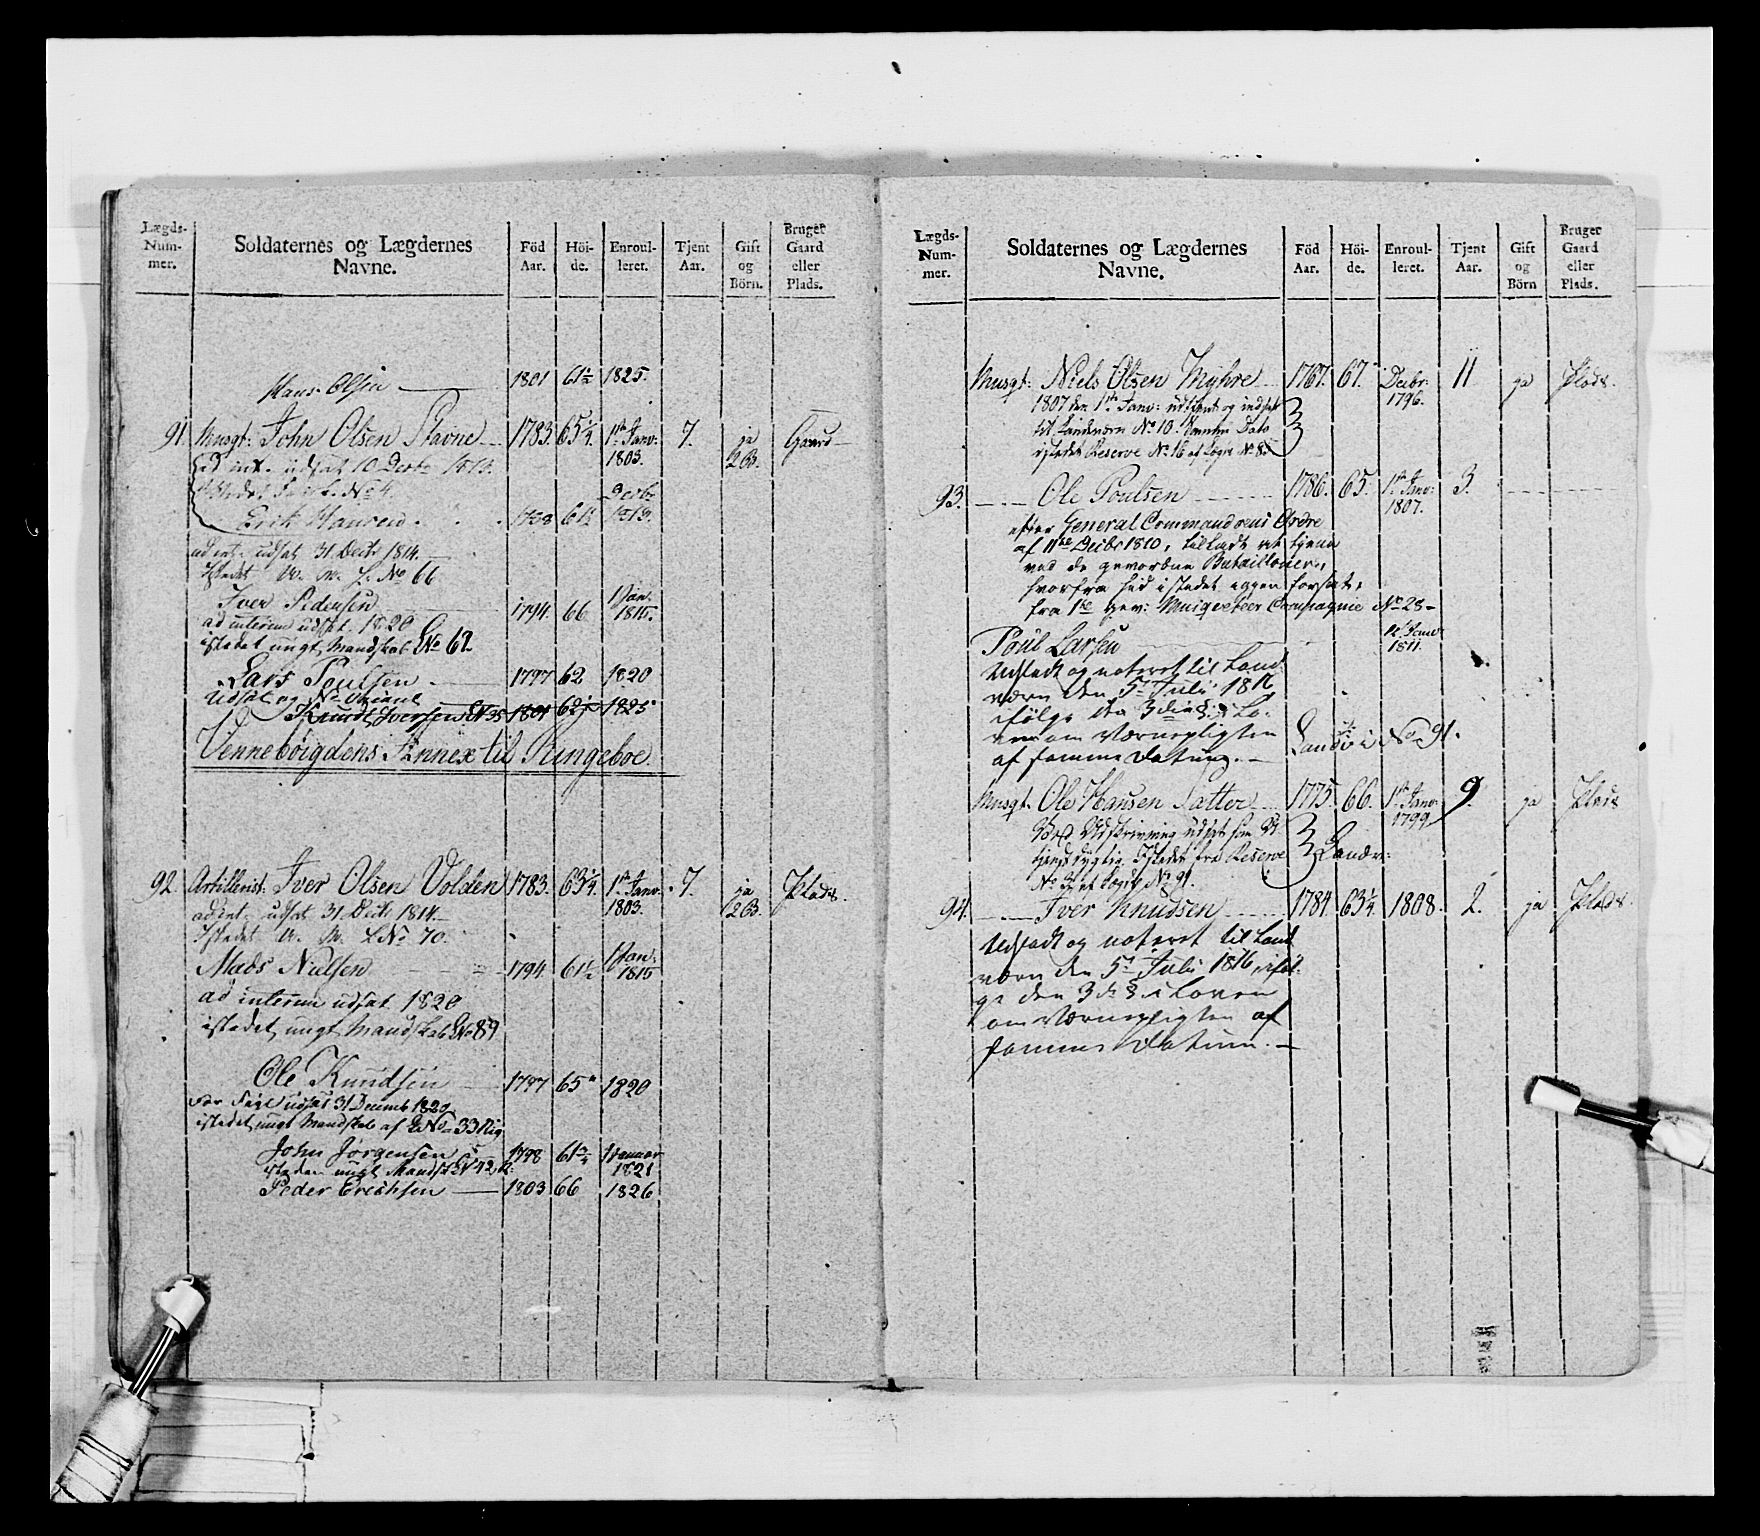 Lægds-Num-mer. Soldaternes og Lægdernes Navne. Föd Aar. Höi-de. Enroul-leret. Tjent Aar. Gift og Börn. Bruger Gaard eller Plads.
Hans Olsen 1801 61½ 1825.
91. Musqt: John Olsen Stavne 1783. 65¼. 1ste Janv: 1803. 7. ja 2 B. Gaard
ad int. udsat 10 Decbr 1813.
istedet No 4.
Erik Hansen 61½ Decbr 1813.
ad int. udsat 31 Decbr 1814.
Istedet U. M. L. No 66
Iver Pedersen 1794. 66 1 Jan. 1815.
ad interim udsat 1820
istedet ungt Mandskab LNo 62
Lars Poulsen 1797 62 1820
Udsat og
Knudt Iversen 1801 62½ 1825
Vennebøigdens Annex til Ringeboe.
92. Artillerist: Iver Olsen Volden 1783. 63¼. 1ste Janv: 1803. 7. ja 2 B. Plads.
ad int. udsat 31 Decbr 1814
Istedet U. M. LNo 70.
Mads Nielsen 1794. 61½ 1 Jan. 1815
ad interim udsat 1820
istedet ungt Mandskab LNo 89
Ole Knudsen 1797 65 " 1820
for Feil udsat 31 Decemb 1820
istedet ungt Mandskab af LNo 33
John Jørgensen 1798 61¾ 1 Januar 1821
isteden ungt Mandsk LN 42
Peder Erichsen 1803 66 1826
Lægds-Num-mer. Soldaternes og Lægdernes Navne. Föd Aar. Höi-de. Enroul-leret. Tjent Aar. Gift og Börn Bruger Gaard eller Plads.
Musqt: Niels Olsen Myhre 1767. 67. Decbr: 1796. 11 ja Plads.
1807 den 1ste Janv: udtient og indsat
til Landeværn No 10. samme Dato
istedet Reserve No 16 af Lægd No 80
93. Ole Poulsen 1786. 65. 1ste Janv: 1807. 3.
efter General Commandoens Ordre
af 11te Decbr 1810, tilladt at tjene
ved de gevorbne Batailloner,
hvorfra hid istedet igjen forsat,
fra 1te gev: Musqveteer Compagnie No 28
Poul Larsen 1st Janv 1811.
Udstædt og noteret til Land
værn den 5te Juli 1816
ifølge den 3die § i Lo-
ven om Værnepligten
af samme Datum. Landv: No 91.
Musqt: Ole Hansen Sætter 1775. 66. 1ste Janv: 1799 9. ja Plads
Ved Udskrivning udsat som U
tjenstdygtig. Istedet fra Reserve Landv:
No 3 af Lægd No 91.
94. Iver Knudsen 1784 63¼ 1808. 2. ja Plads.
Udstædt og noteret til Land
værn den 5te Juli 1816, iføl-
ge den 3die § i Loven
om Værnepligten af
samme Datum.